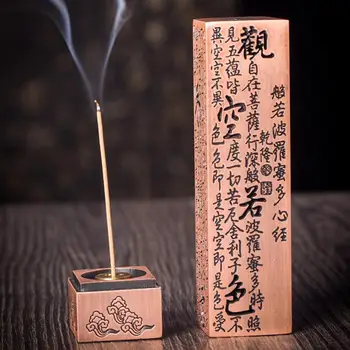 般若波羅蜜多心經
乾隆
觀自在菩薩行深般若波羅蜜多時照
見五蘊皆空度一切苦厄舍利子色不
異空空不異色色即是空空即是色受